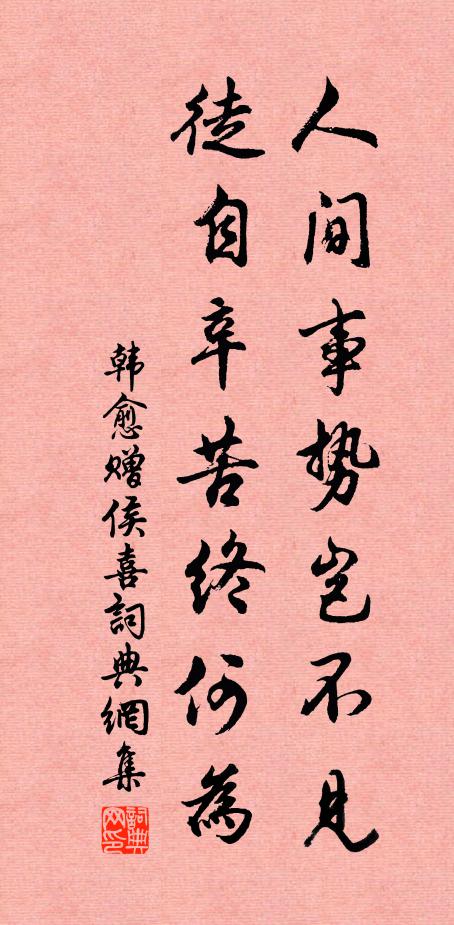 人间事势岂不见
徒自辛苦终何為
韩愈赠侯喜詞典網集
詞典网印